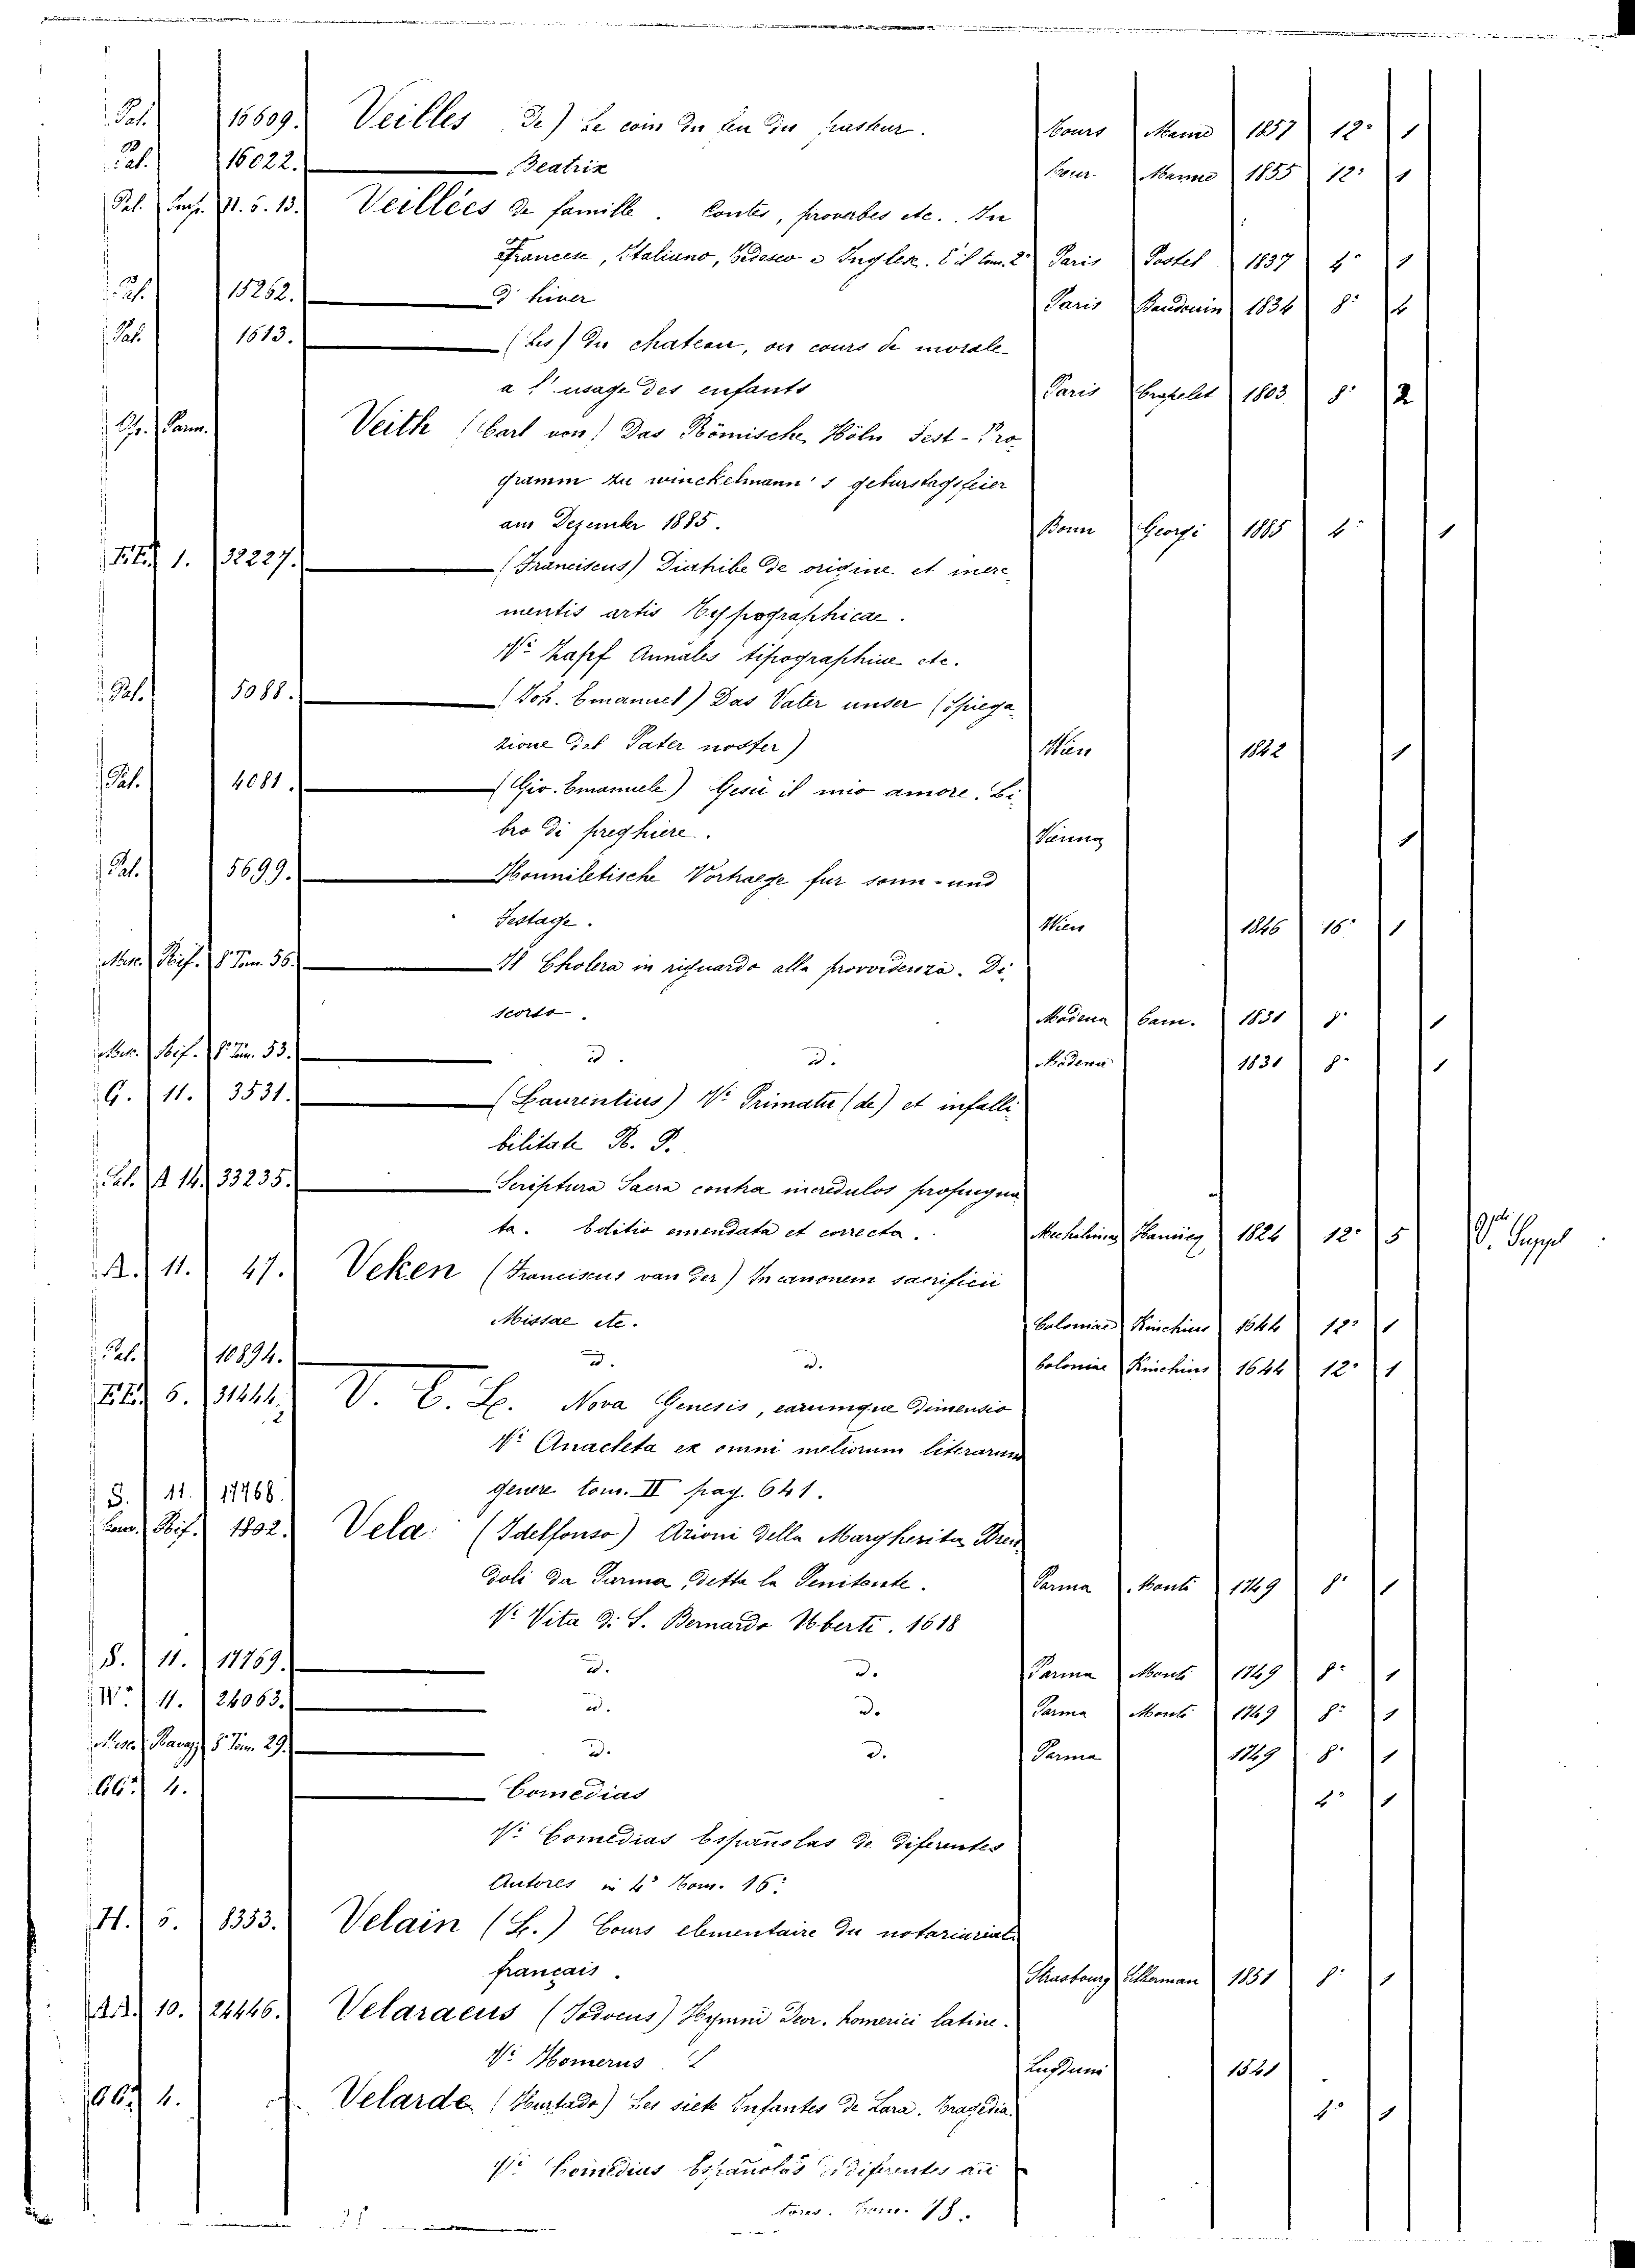 Pal. 15609. Veilles De) Le coin du feu du pasteur. Tours Mame 1857 12° 1
Pal. 16022. Beatrix Tour. Mame 1855 12° 1
Pal. 11. 5. 13. Veillées de famille. Contes, proverbes etc. In
Francese, Italiano, Tedesco e Inglese. È il tom. 2° Paris Postel 1837 4° 1
Pal. 15262. D' hiver Paris Baudouin 1834 8°
Pal. 1613. (Les) du chateau, ou cours de morale
a l' usage des enfants Paris Crapelet 1803 8° 2
Parm. Veith (Carl von) Das Römische Köln Fest-Pro
gramm zu winckelmann's geburstagsfeier
am Dezember 1885. Bonn Georgi 1885 4° 1
1. 32227. (Franciscus) Diatribe de origine et incre
mentis artis typographicae.
V° Zapf Annales tipographiae etc.
Pal. 5088. (Joh. Emanuel) Das Vater unser (Spiega
zione del Pater noster) Wien 1842 1
Pal. 4081. (Gio. Emanuele) Gesù il mio amore. Li
bro di preghiere. Vienna 1
Pal. 5699. Homiletische Vortraege fur sonn- und
Festage. Wien 1846 16° 1
Misc. Rif. 8° Tom. 56. Il Cholera in riguardo alla provvidenza. Di
scorso. Modena Cam. 1831 8° 1
Misc. Rif. 8° Tom. 53. d. d. Modena 1831 8° 1
G. 11. 3531. (Laurentius) V° Primatu (de) et infalli
bilitate R. P.
Pal. 14. 33235. Scriptura Sacra contra incredulos propugna
ta. Editio emendata et correcta. Mechelinia Hanicq 1824 12° 5 V. Suppl
A. 11. 47. Veken (Franciscus van der) In canonem sacrificii
Missae etc. Coloniae Kinchius 1644 12° 1
Pal. 10894. d. d. Coloniae Kinchius 1644 12° 1
6. 31444. V. E. L. Nova Genesis, earumque dimensio
2
V° Anacleta ex omni meliorum literarum
S. 11. 17768. genere tom. II pag. 641.
Rif. 1802. Vela (Idelfonso) Azioni della Margherita Bren
doli da Parma, detta la Penitente. Parma Monti 1749 8° 1
V° Vita di S. Bernardo Uberti. 1618
S. 11. 17759. d. d. Parma Monti 1749 8° 1
W° 11. 24063. d. d. Parma Monti 1749 8° 1
Misc. Ravazz. 8° Tom. 29. d. d. Parma 1749 8° 1
4. Comedias 4° 1
V° Comedias Españolas de diferentes
Autores in 4° Tom. 16°
H. 5. 8353. Velain (L.) Cours elementaire du notariariat
francais. Strasbourg 1851 8° 1
10. 24446. Velaraeus (Jodocus) Hymni Deor. homerici latine.
V° Homerus Lugduni 1521
4. Velarde (Hurtado) Les siete Infantes de Lara. Tragedia. 4° 1
V° Comedias Españolas de diferentes au
tores. Tom. 18.